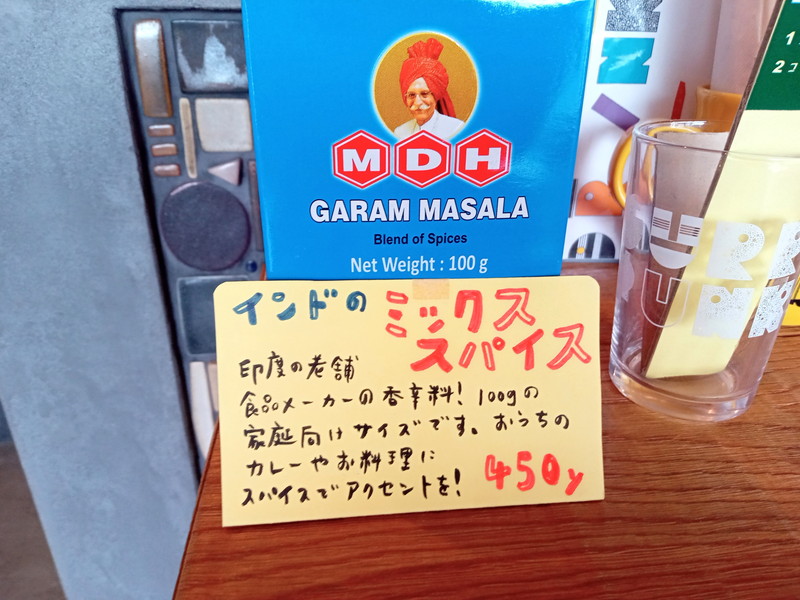 MDH
GARAM MASALA
Blend of Spices
Net Weight : 100 g
インドの ミックス
スパイス
印度の老舗
食品メーカーの香辛料! 100gの
家庭向けサイズです。おうちの
カレーやお料理に
スパイスでアクセントを!
450y
1
2コ